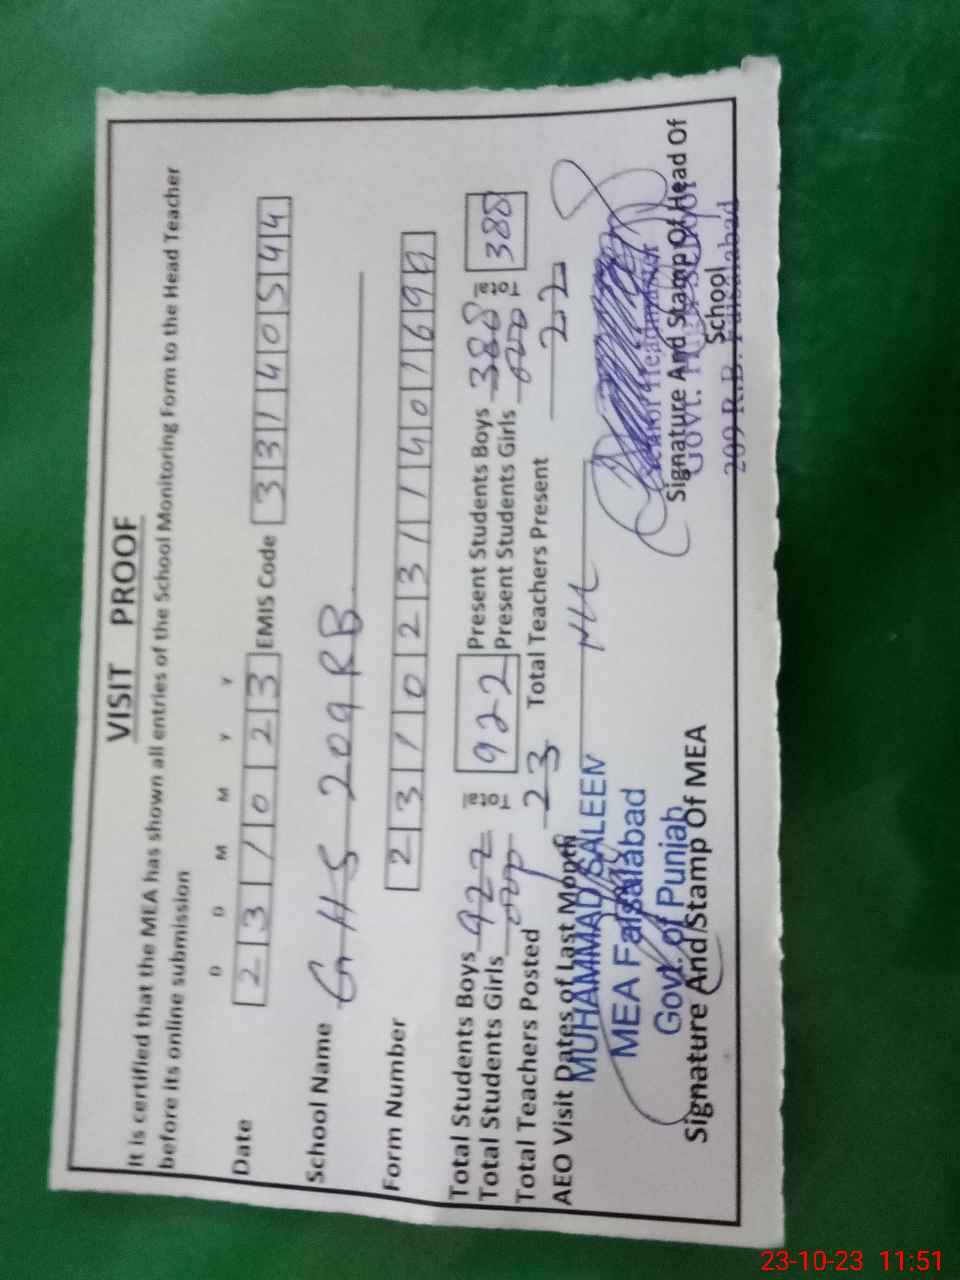 VISIT PROOF
It is certified that the MEA has shown all entries of the School Monitoring Form to the Head Teacher
before its online submission
D D M M Y Y
Date 2 3 1 0 2 3 EMIS Code 3 3 1 4 0 5 4 4
School Name GHS 209 RB
Form Number 2 3 1 0 2 3 1 1 4 0 1 6 9 9
Total Students Boys 922 Total 922 Present Students Boys 388 Total 388
Total Students Girls Present Students Girls
Total Teachers Posted 23 Total Teachers Present 22
AEO Visit Dates of Last Month Nil
MUHAMMAD SALEEN
MEA Faisalabad
Govt. of Punjab
Signature And Stamp Of MEA
Senior Headmaster
Signature And Stamp Of Head Of
School
Govt. High School
209 R.B. Faisalabad
23-10-23 11:51